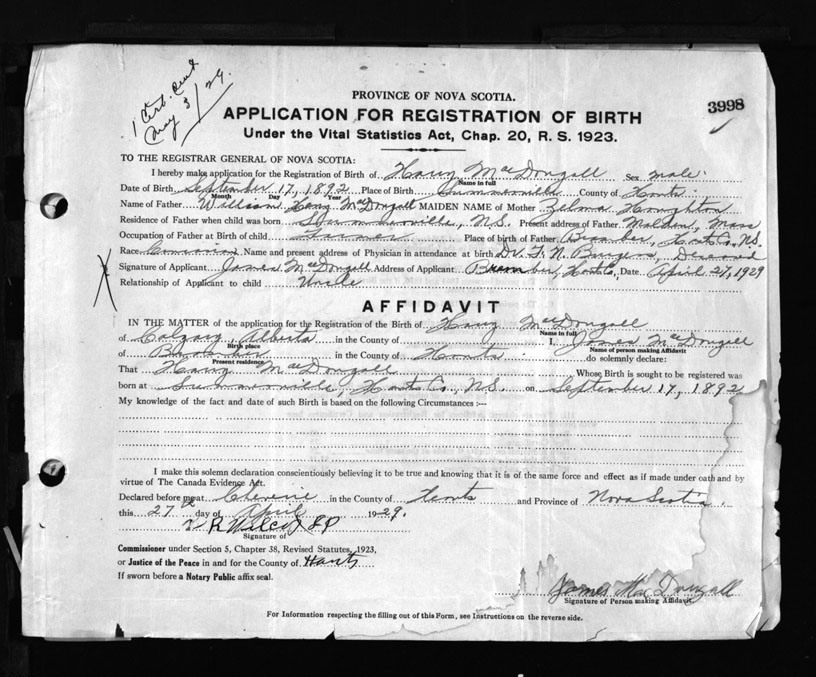 1 Cert. Sent
May 3/29.
PROVINCE OF NOVA SCOTIA.
3998
APPLICATION FOR REGISTRATION OF BIRTH
Under the Vital Statistics Act, Chap. 20, R. S. 1923.
TO THE REGISTRAR GENERAL OF NOVA SCOTIA:
I hereby make application for the Registration of Birth of Harry MacDougall Sex male.
Name in full
Date of Birth September 17, 1892 Place of Birth Summerville County of Hants.
Month Day Year
Name of Father William Harry MacDougall MAIDEN NAME of Mother Zelma Houghton
Residence of Father when child was born Summerville, N.S. Present address of Father Malden, Mass
Occupation of Father at Birth of child Farmer Place of birth of Father Bramber, Hants Co., N.S.
Race Name and present address of Physician in attendance at birth Dr. F. N. Burgess, Deceased
Signature of Applicant James MacDougall Address of Applicant Bramber, Hants Co., Date April 27, 1929
X
Relationship of Applicant to child Uncle
AFFIDAVIT
IN THE MATTER of the application for the Registration of the Birth of Harry MacDougall
Name in full
of Calgary, Alberta in the County of I, James MacDougall
Birth place Name of person making Affidavit
of Bramber in the County of Hants. do solemnly declare:
Present residence
That Harry MacDougall Whose Birth is sought to be registered was
born at Summerville, Hants Co., N.S. on September 17, 1892
My knowledge of the fact and date of such Birth is based on the following Circumstances :—
I make this solemn declaration conscientiously believing it to be true and knowing that it is of the same force and effect as if made under oath and by
virtue of The Canada Evidence Act.
Declared before me at Cheverie in the County of Hants and Province of Nova Scotia.
this 27th day of April 1929.
R Wilcox JP
Signature of
Commissioner under Section 5, Chapter 38, Revised Statutes, 1923,
or Justice of the Peace in and for the County of Hants
If sworn before a Notary Public affix seal.
James MacDougall
Signature of Person making Affidavit
For Information respecting the filling out of this Form, see Instructions on the reverse side.